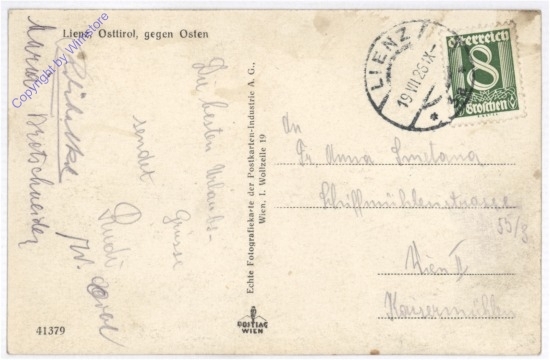 Lienz, Osttirol, gegen Osten
Copyright by Winstore
Die besten Urlaubs-
Grüsse
sendet
Rudi
Maria Bretschneider
Echte Fotografiekarte der Postkarten-Industrie A. G.,
Wien, 1. Wollzeile 19
POSTIAG
WIEN
41379
LIENZ
19 VII 26 IX-
Österreich
8
Groschen
An
Fr. Anna Smetana
Schiffmühlenstrasse
55/8
Wien II
Kaisermühlen